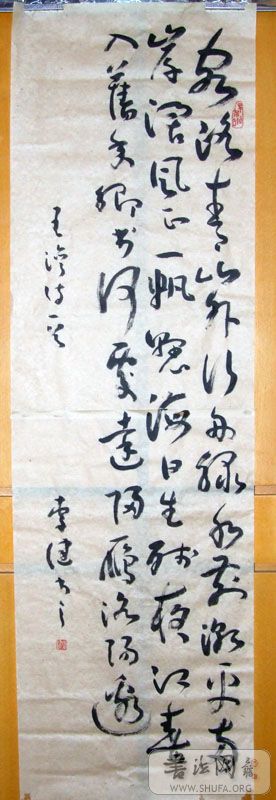 客路青山外行舟绿水前潮平两
岸阔风正一帆悬海日生残夜江春
入旧年乡书何处达归雁洛阳边
王湾诗一首
李健书
书法网
WWW.SHUFA.ORG